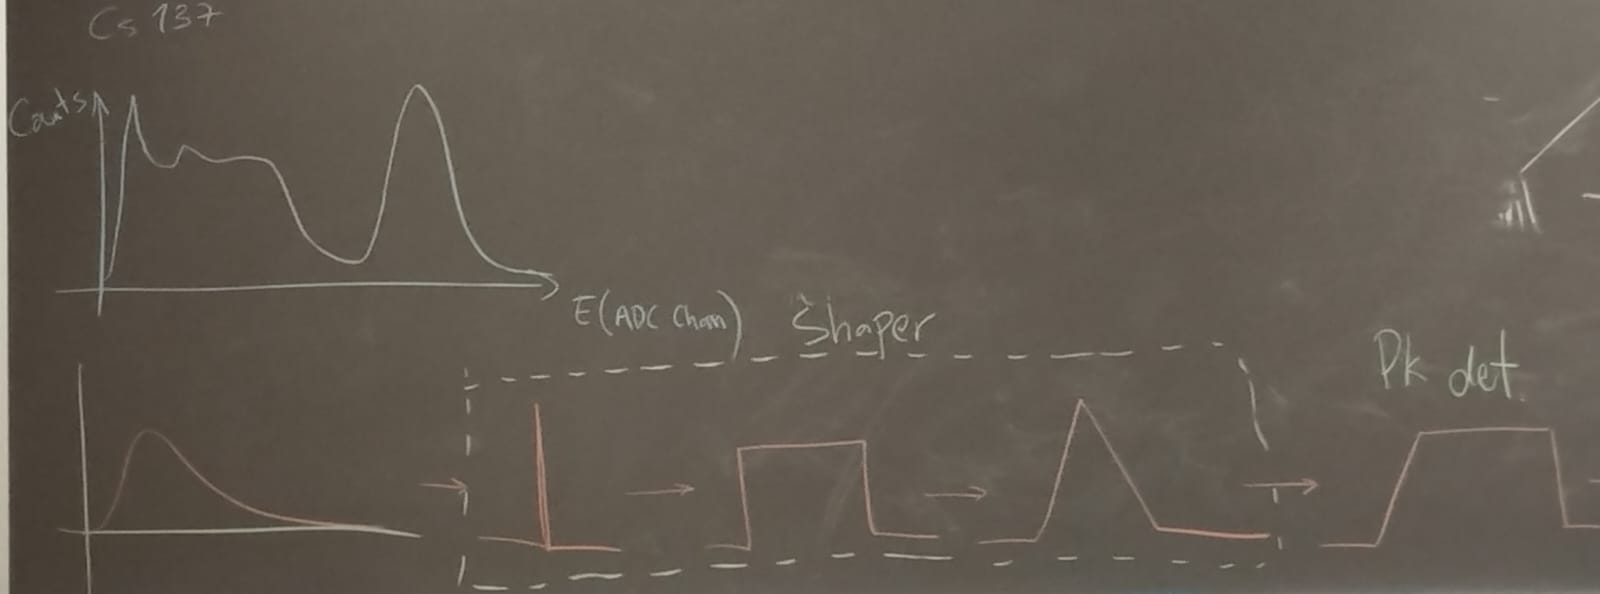 Cs 137
Counts
E(ADC Chan)
Shaper
Pk det.